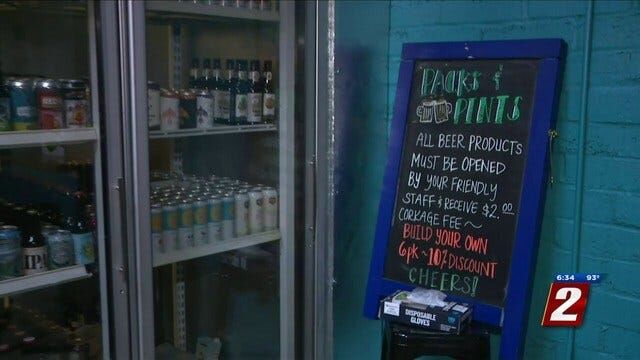 PACKS &
PINTS
ALL BEER PRODUCTS
MUST BE OPENED
BY YOUR FRIENDLY
STAFF & RECEIVE $2.00
CORKAGE FEE ~
BUILD YOUR OWN
6pk ~ 10% DISCOUNT
CHEERS!
DISPOSABLE
GLOVES
6:34 93°
2